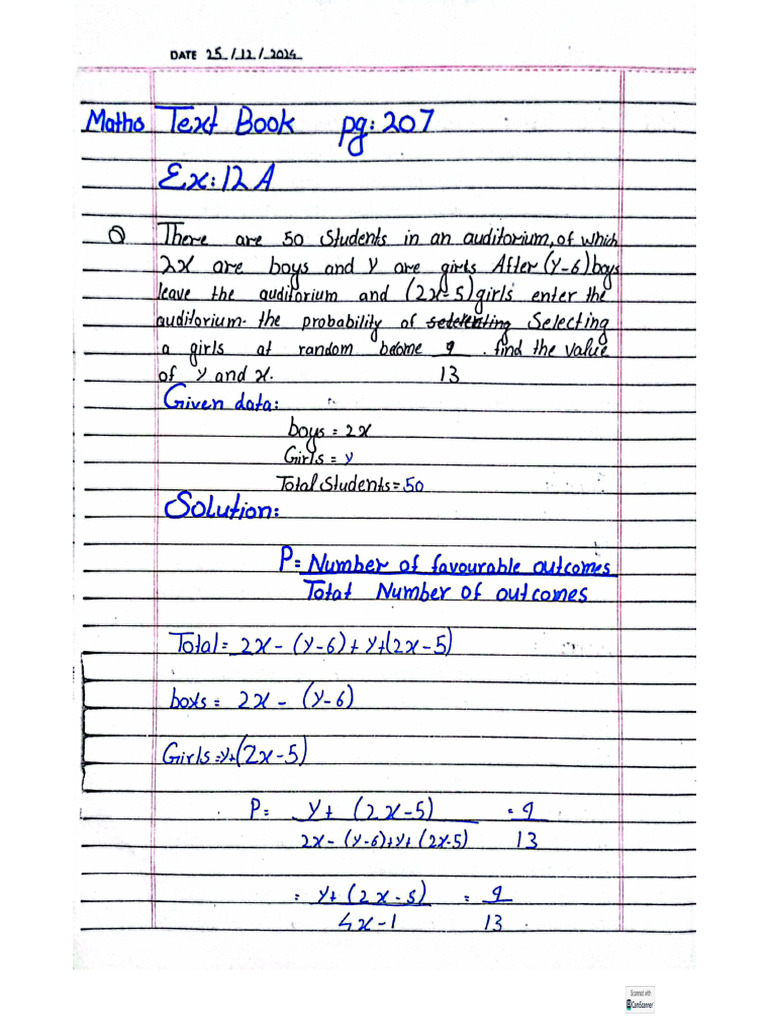 DATE 25/12/2024
Maths Text Book pg: 207
Ex: 12 A
Q There are 50 Students in an auditorium, of which
2x are boys and y are girls After (y-6) boys
leave the auditorium and (2x-5) girls enter the
auditorium. the probability of Selecting
a girls at random become 9/13. find the value
of y and x.
Given data:
boys = 2x
Girls = y
Total Students = 50
Solution:
P = Number of favourable outcomes
Total Number of outcomes
Total = 2x - (y-6) + y + (2x-5)
boxs = 2x - (y-6)
Girls = y + (2x-5)
P = y + (2x-5) = 9
2x - (y-6) + y + (2x-5) 13
= y + (2x-5) = 9
4x-1 13
Scanned with
CamScanner